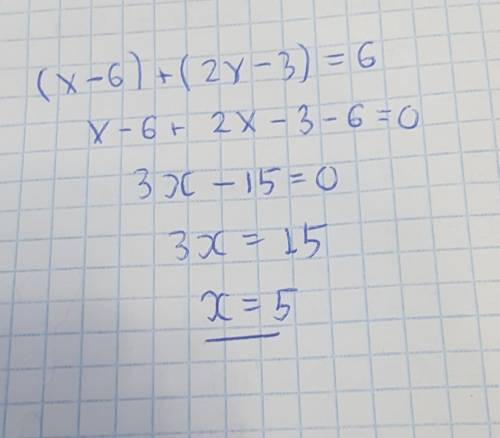 (x-6)+(2x-3)=6
x-6+ 2x-3-6=0
3x-15=0
3x=15
x=5